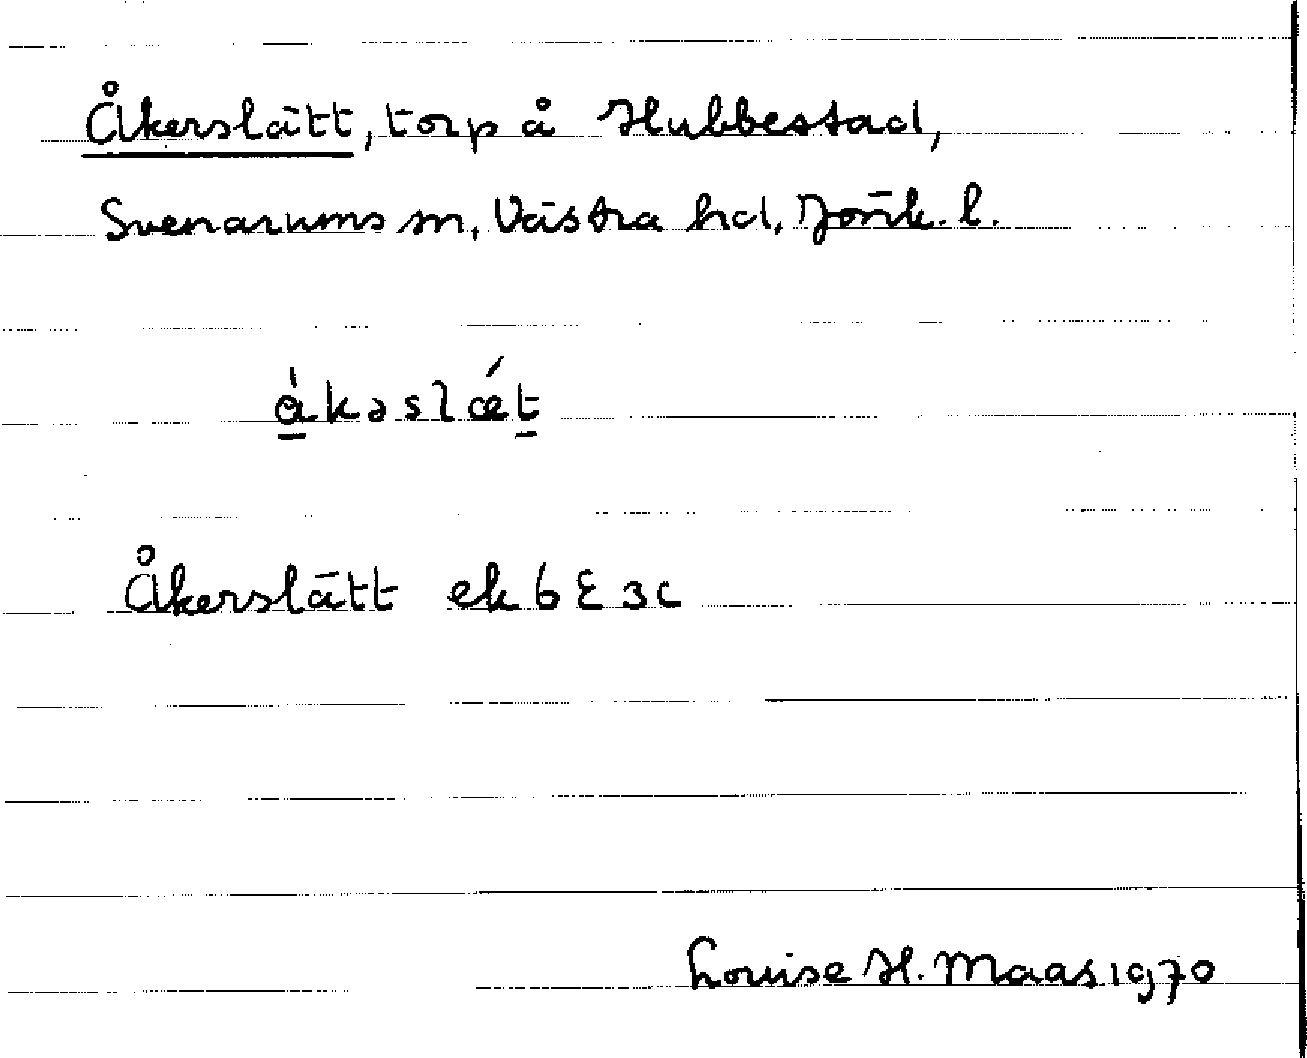 Åkerslätt, torp å Hubbestad,
Svenarums sn, Västra hd, Jönk. l.
å̀kəslǽt
Åkerslätt ek 6 E 3c
Louise H. Maas 1970